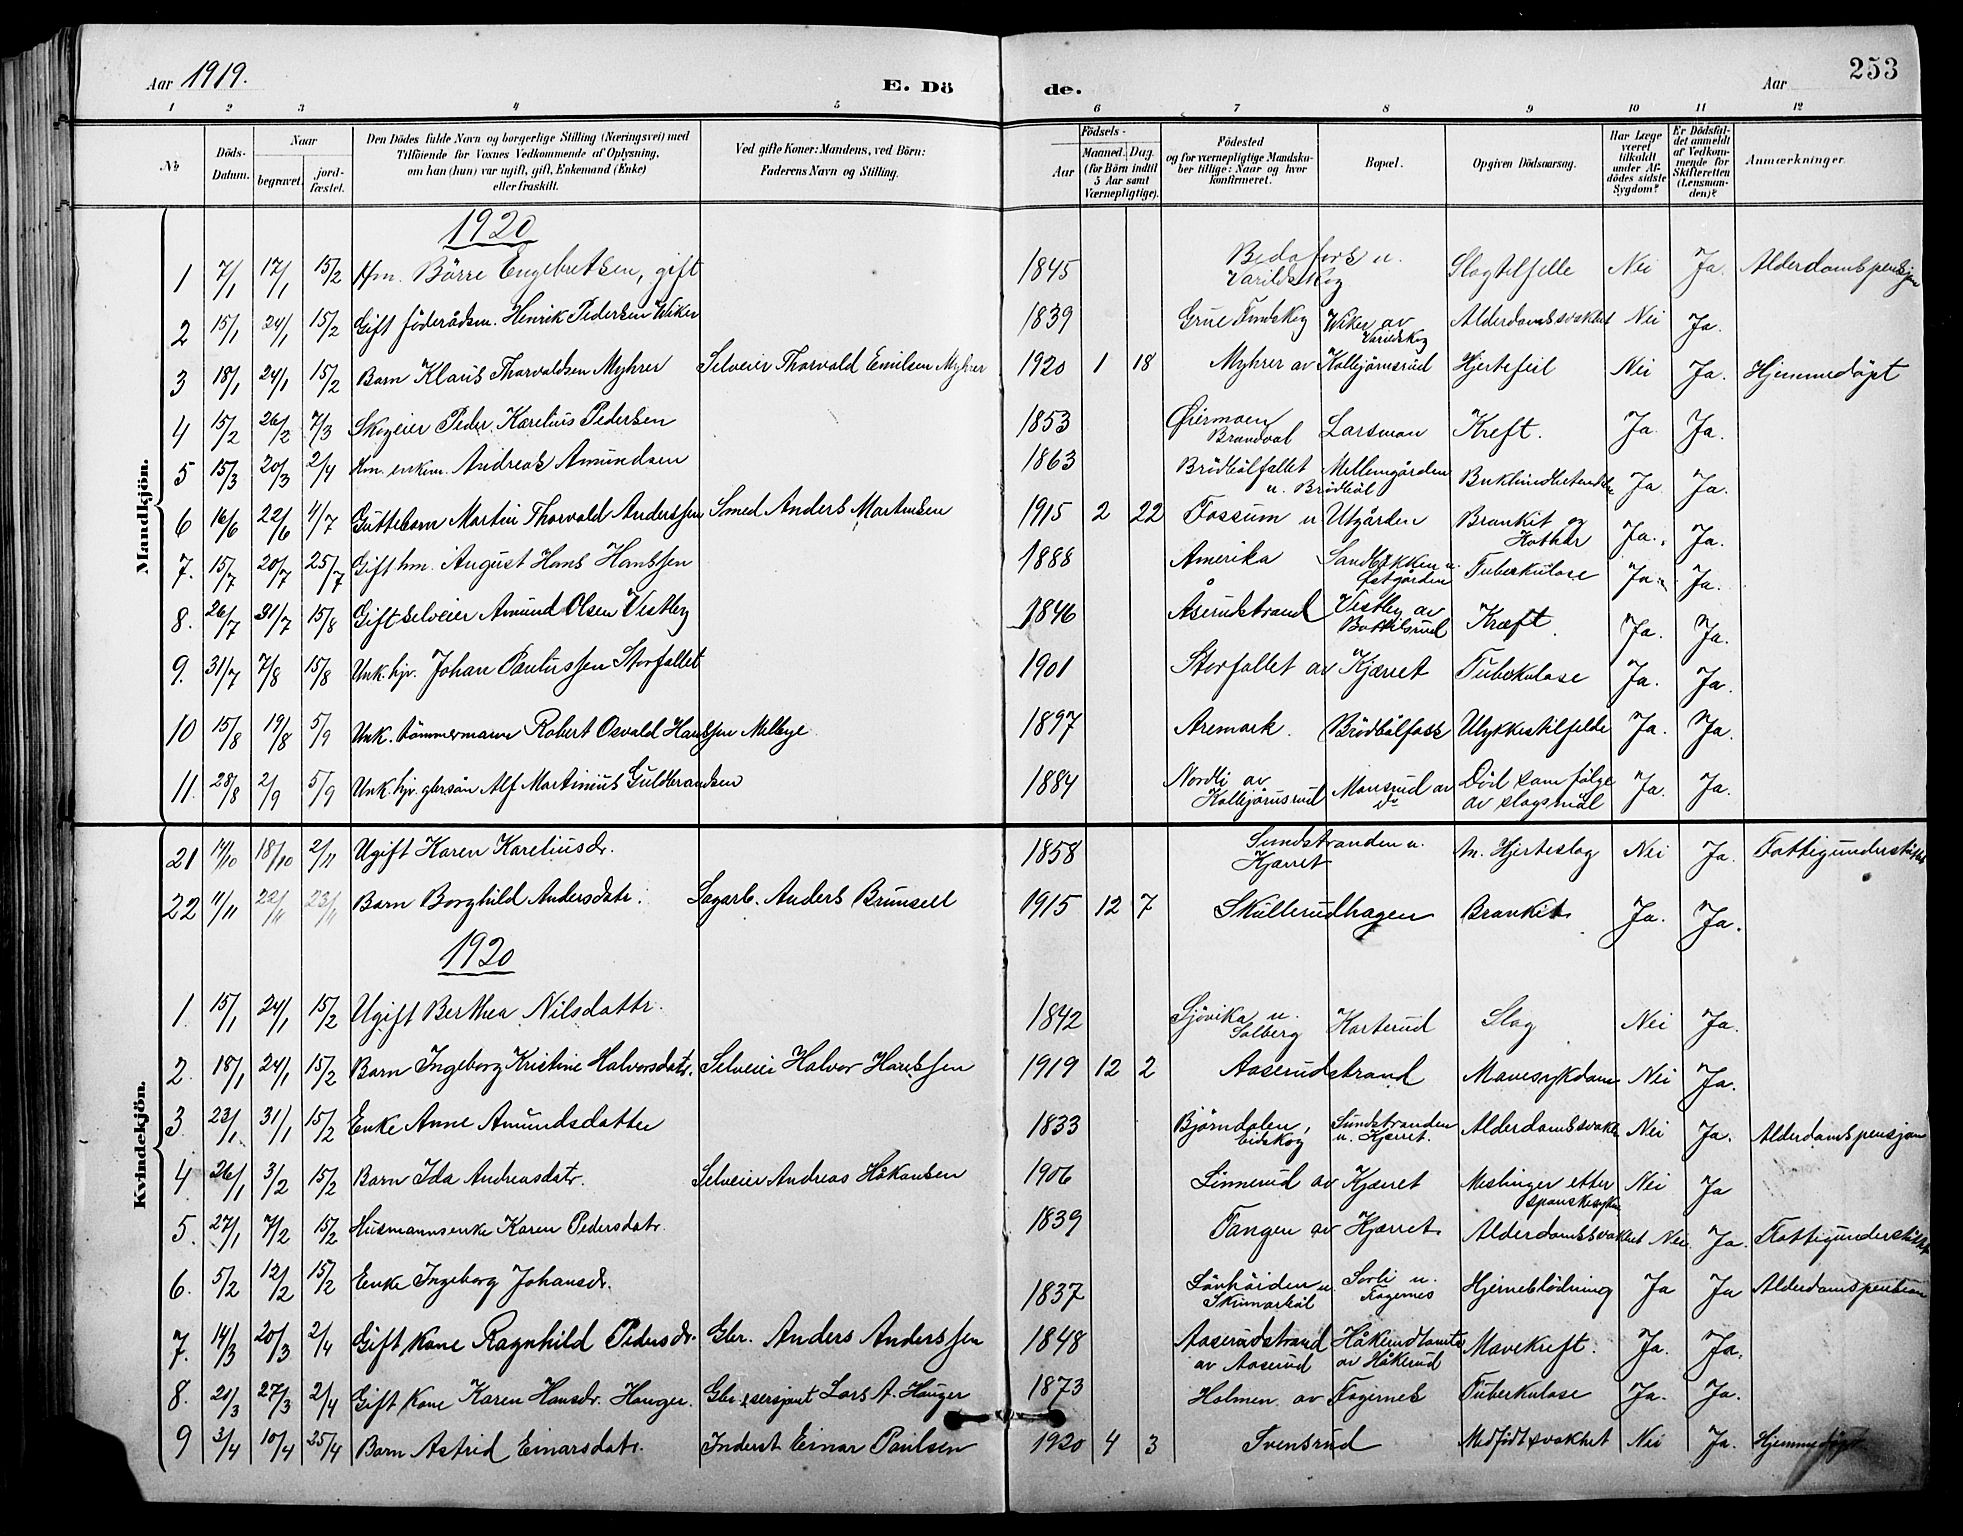 Aar 1919.
E. Dö
de.
Aar
253
1 2 3 4 5 6 7 8 9 10 11 12
No.
Döds-Datum.
Naar
begravet.
jordfæstet.
Den Dödes fulde Navn og borgerlige Stilling (Næringsvei) med
Tilföiende for Voxnes Vedkommende af Oplysning,
om han (hun) var ugift, gift, Enkemand (Enke)
eller fraskilt.
Ved gifte Koner: Mandens, ved Börn:
Faderens Navn og Stilling.
Födsels-
Aar
Maaned. Dag.
(for Börn indtil
5 Aar samt
Værnepligtige).
Födested
og for værnepligtige Mandskaber tillige: Naar og hvor
konfirmeret.
Bopæl.
Opgiven Dödsaarsag.
Har Læge
været
tilkaldt
under Afdödes sidste
Sygdom?
Er Dödsfaldet anmeldt
af Vedkommende for
Skifteretten
(Lensmanden)?
Anmærkninger.
Mandkjön.
1920
1 7/1 17/1 15/2 Hm. Börre Engebretsen, gift 1845 u. Varildskog Slagtilfelle Nei Ja. Alderdomspensjon
2 15/1 24/1 15/2 Gift föderådsm. Henrik Pedersen Wiker 1839 Grue Finskog Wiker av Varildskog Alderdomssvakhet Nei Ja.
3 18/1 24/1 15/2 Barn Klaus Thorvaldsen Myhrer Selveier Thorvald Emilsen Myhrer 1920 1 18 Myhrer av Kolbjörnsrud Hjertefeil Nei Ja. Hjemmedöpt
4 15/2 26/2 7/3 Skogeier Peder Karelius Pedersen 1853 Øiermoen Brandval Larsmon Kreft. Ja Ja.
5 15/3 20/3 2/4 Hm. enkem. Andreas Amundsen 1863 Brödbölfallet u. Brödböl Mellemgården Ja Ja.
6 16/6 22/6 4/7 Guttebarn Martin Thorvald Anderssen Smed Anders Martinsen 1915 2 22 Fossum u Utgården Bronkit og Ja. Ja.
7. 15/7 20/7 25/7 Gift hm. August Hans Hanssen 1888 Amerika Sandbakken u. Østgården Tuberkulose Ja. Ja.
8. 26/7 31/7 15/8 Gift selveier Amund Olsen Vestby 1846 Åserudstrand Vestby av Bottilsrud Kræft. Ja. Ja.
9. 31/7 7/8 15/8 Unk. hjv. Johan Paulussen Storfallet 1901 Storfallet av Kjærret Tuberkulose Ja. Ja.
10 15/8 19/8 5/9 Unk. tömmermann Robert Osvald Hanssen Melbye. 1897 Aremark. Brödbölfoss Ulykkestilfelde Ja. Ja.
11. 28/8 2/9 5/9 Unk. hjv. gbrsön Alf Martinius Guldbrandsen 1884 Nordli av Kolbjörnsrud Monsrud av do Död som fölge av slagsmål Ja. Ja.
Kvindekjön.
21 14/10 18/10 2/11 Ugift Karen Kareliusdr. 1858 Sundstranden u. Kjærret An. Hjerteslag Nei Ja. Fattigunderstöttet
22 11/11 22/11 23/11 Barn Borghild Andersdatr. Sagarb. Anders Brunsell 1915 12 7 Skullerudhagen Bronkit Ja. Ja.
1920
1. 15/1 24/1 15/2 Ugift Berthea Nilsdattr. 1842 Sjövika u. Solberg Korterud Slag Nei Ja.
2. 18/1 24/1 15/2 Barn Ingeborg Kristine Halvorsdatr. Selveier Halvor Hanssen 1919 12 2 Aaserudstrand Mavesykdom Nei Ja.
3. 23/1 31/1 15/2 Enke Anne Amundsdatter 1833 Björndalen, Eidskog Sundstranden u. Kjærret. Alderdomssvakhet Nei Ja. Alderdomspensjon
4. 26/1 3/2 15/2 Barn Ida Andreasdatr. Selveier Andreas Håkonsen 1906 Linnerud av Kjærret Meslinger etter spanskesyken Nei Ja
5. 27/1 7/2 15/2 Husmannsenke Karen Pedersdatr. 1839 Tangen av Kjærret. Alderdomssvakhet Nei. Ja. Fattigunderstöttet
6. 5/2 12/2 15/2 Enke Ingeborg Johansdr. 1837 Lövhöiden u. Skinnarböl Sorli u. Fagernes Hjerneblödning Ja Ja Alderdomspension
7. 14/3 20/3 2/4 Gift kone Ragnhild Pedersdr. Gbr. Anders Anderssen 1848 Aaserudstrand av Aaserud Håkerudtomta av Håkerud Mavekreft. Ja. Ja.
8. 21/3 27/3 2/4 Gift kone Karen Hansdr. Hauger. Gbr. sersjant Lars A. Hauger 1873 Holmen av Fagernes Tuberkulose Ja. Ja.
9 3/4 10/4 25/4 Barn Astrid Einarsdatr. Inderst Einar Paulsen 1920 4 3 Svensrud Medfödt svakhet Nei Ja. Hjemmedöpt